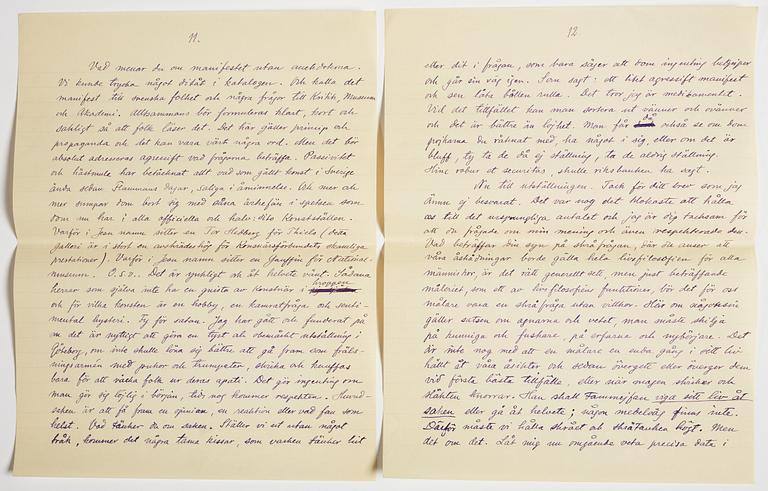 11.
Vad menar du om manifestet utan anekdoterna.
Vi kunde trycka något ditåt i katalogen. Och kalla det
manifest till svenska folket och några frågor till Kritik, Museum
och Akademi. Alltsammans bör formuleras klart, kort och
sakligt så att folk läser det. Det här gäller princip och
propaganda och det kan vara värt några ord. Men det bör
absolut adresseras agressift vad frågorna beträffa. Passivitet
och håstmule har betecknat allt vad som gällt konst i Sverige
ända sedan Rammans dagar, saliga i åminnelse. Och mer och
mer sumpar dom bort sig med såna ärkefän i spetsen som
dom nu har i alla officiella och halv-dito Konstställen.
Varför i Jesu namn sitter en Tor Hedberg för Thiels (detta
galleri är i stort en avskrädeshög för Konstnärsförbundets skamliga
prestationer). Varför i Jesu namn sitter en Gauffin för National-
museum. O.s.v. Det är ynkligt och åt helvete vänt. Sådana
herrar som själva inte ha en gnista av konstnär i kroppen
och för vilka konsten är en hobby, en kamratfråga och senti-
mental hysteri. Ty för satan. Jag har gått och funderat på
om det är nyttigt att göra en tyst och obemärkt utställning i
Göteborg, om inte skulle löna sig bättre att gå fram som fräls-
ningsarmén med pukor och trumpeter, skrika och knuffas
bara för att väcka folk ur deras apati. Det gör ingenting om
man gör sig löjlig i början, tids nog kommer respekten. Huvud-
saken är att få fram en opinion, en reaktion eller vad fan som
helst. Vad tänker du om saken. Ställer vi ut utan något
bråk, kommer det några tama kissar, som varken tänker hit
12
eller dit i frågan, som bara säger att dom ingenting begriper
och går sin väg igen. Som sagt: ett litet agressift manifest
och sen låta bollen rulla. Det tror jag är medikamentet.
Vid det tillfället kan man sortera ut vänner och ovänner
och det är bättre än lojhet. Man får då också se om dom
pojkarna du räknat med, ha något i sig, eller om det är
bluff, ty ta de då ej ställning, ta de aldrig ställning.
Hine robur et securitas, skulle riksbanken ha sagt.
Nu till utställningen. Tack för ditt brev som jag
ännu ej besvarat. Det var nog det klokaste att hålla
oss till det ursprungliga antalet och jag är dig tacksam för
att du frågade om min mening och även respekterade den.
Vad beträffar din syn på skråfrågan, där du anser att
våra åskådningar borde gälla hela livsfilosofien för alla
människor, är det rätt generellt sett, men just beträffande
måleriet, som ett av livsfilosofiens funktioner, bör det för oss
målare vara en skråfråga utan villkor. Här om någonsin
gäller satsen om agnarna och vetet, man måste skilja
på kunniga och fuskare, på erfarna och nybörjare. Det
är inte nog med att en målare en enda gång i sitt liv
hållit åt våra åsikter och sedan övergett eller överger dem
vid första bästa tillfälle, eller när magen skriker och
släkten knorrar. Han skall viga sitt liv åt
saken eller gå åt helvete; någon medelväg finns inte.
Därför måste vi hålla skrået och skråtanken högt. Men
det om det. Låt mig nu omgående veta precisa data i